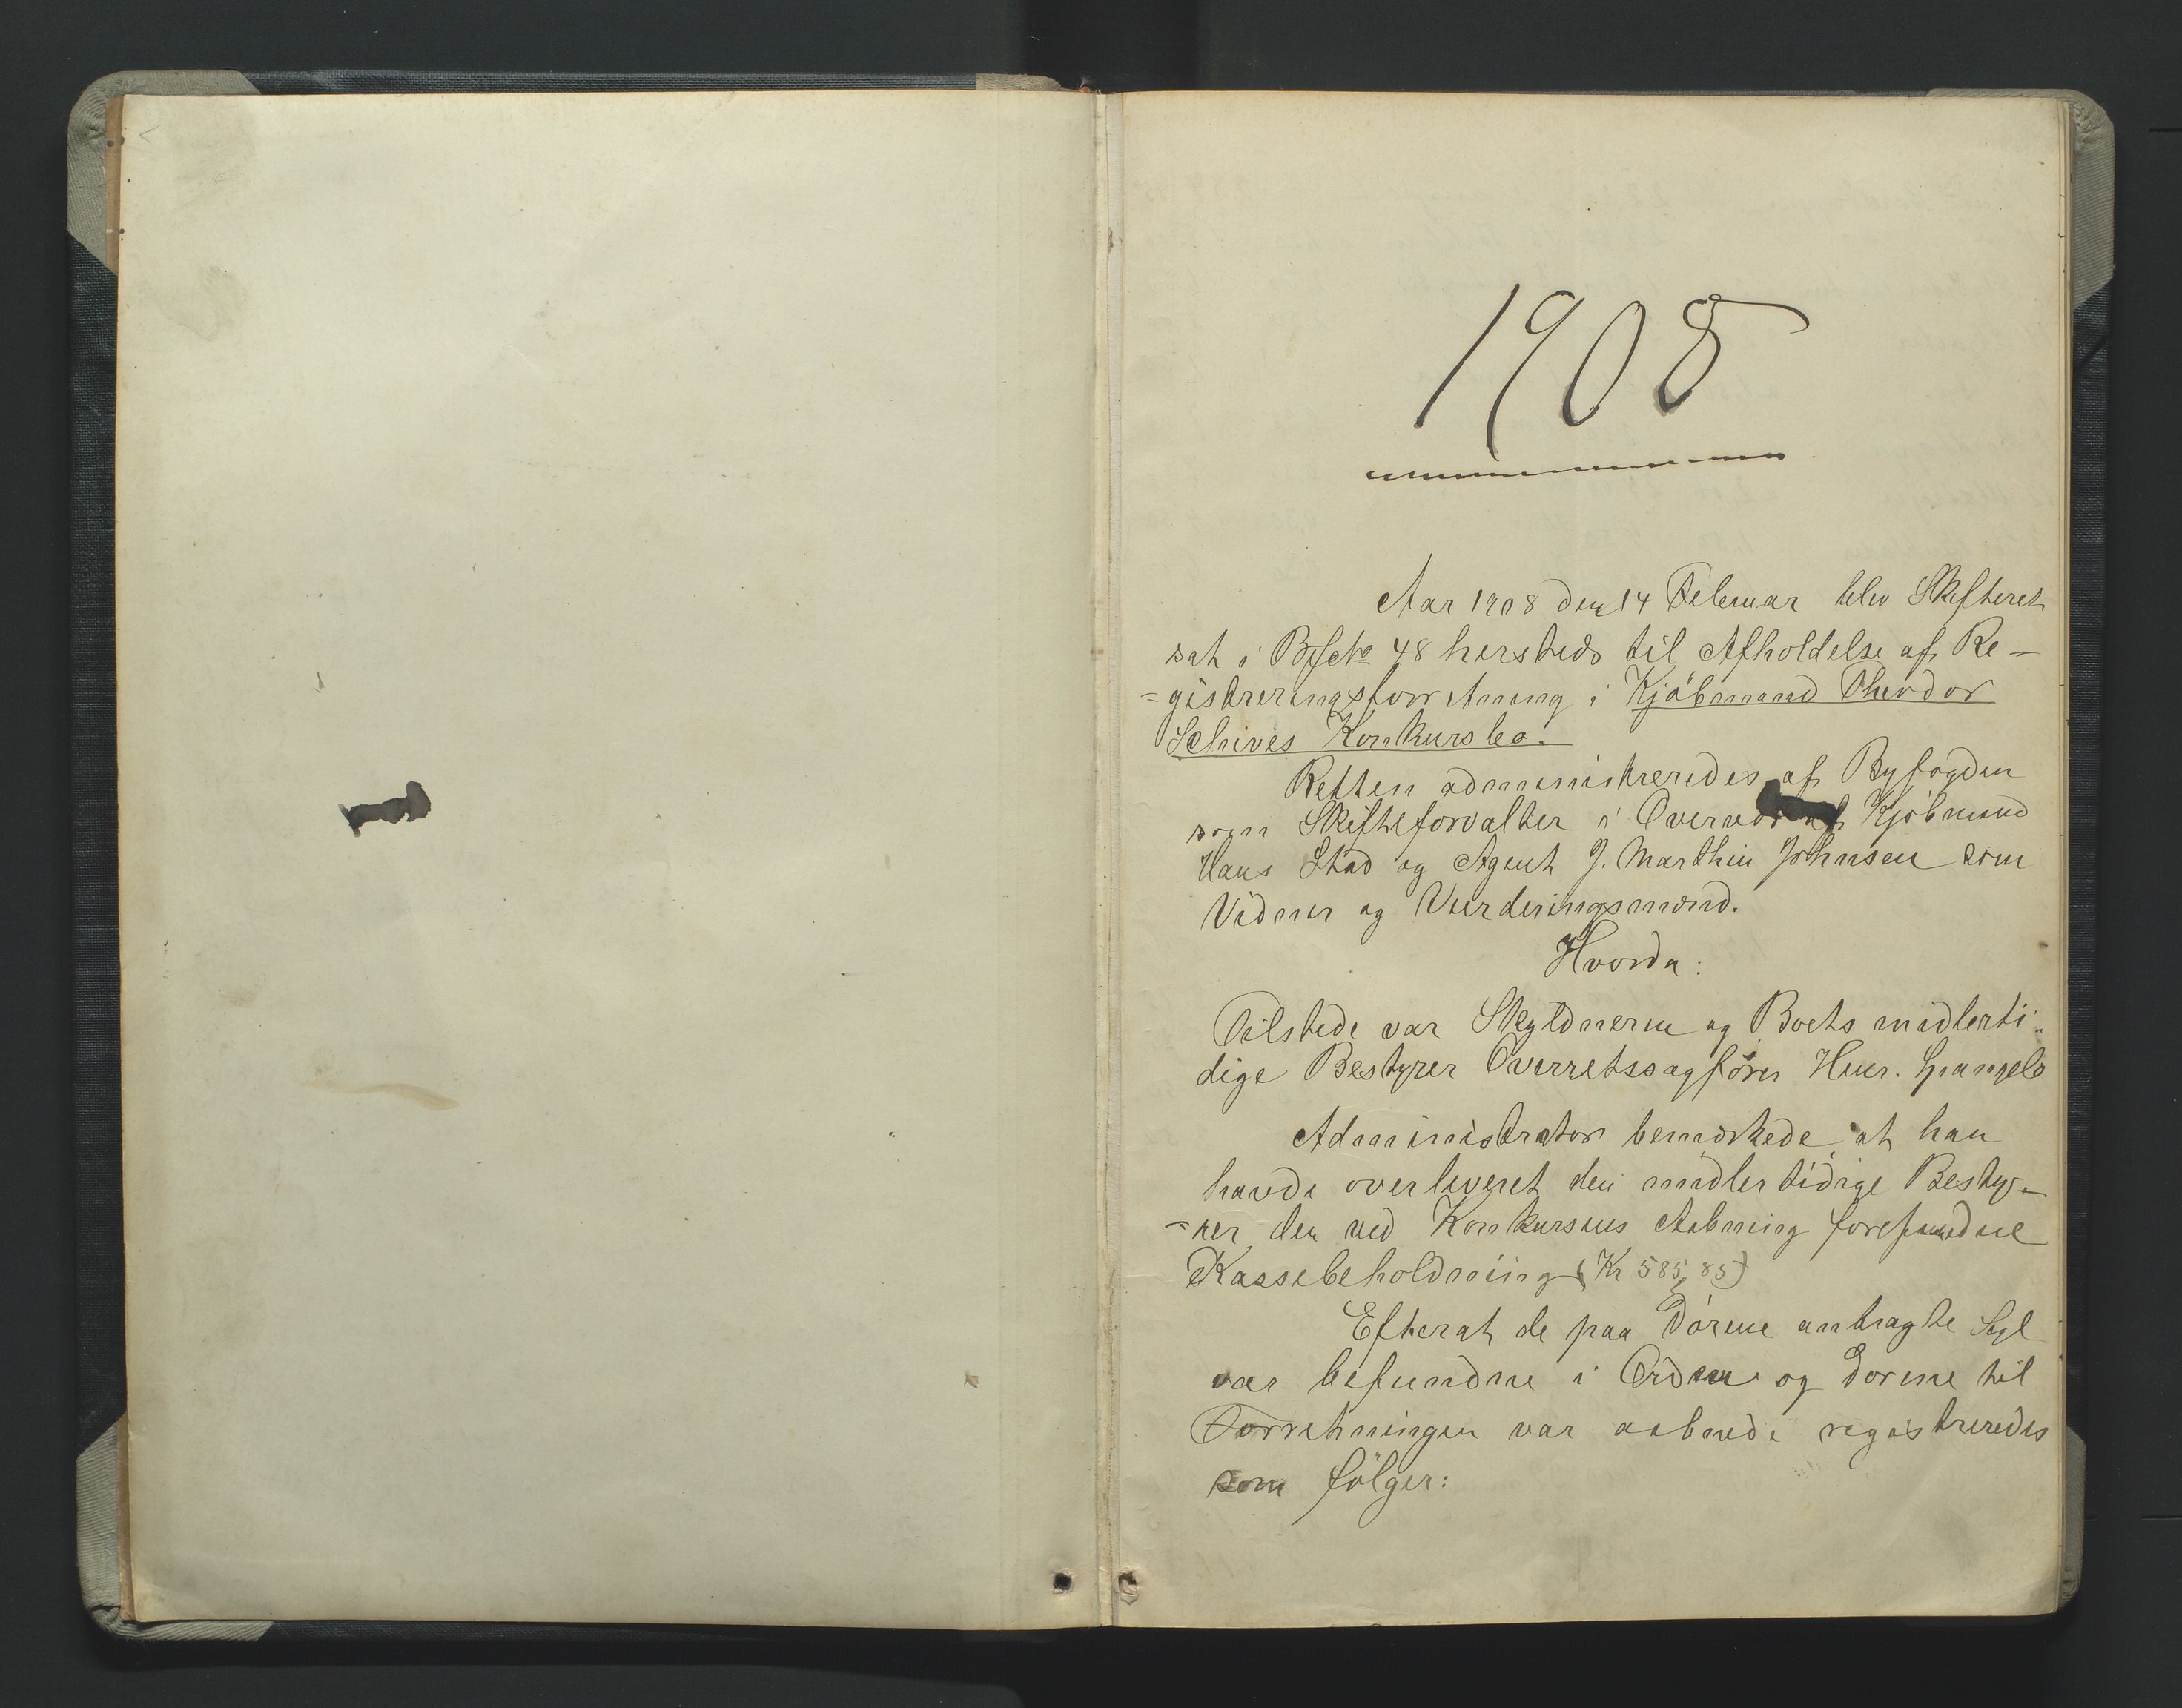 1908
Aar 1908 den 14 Februar blev Skifteret
sat i Bfst. No 48 hersteds til Afholdelse af Re-
=gistreringsforretning i Kjøbmand Theodor
Schives Konkursbo.
Retten administreredes af Byfogden
som Skifteforvalter i Overvær af Kjøbmand
Hans Stad og Agent J. Marthin Johnsen som
Vidner og Vurderingsmænd.
Hvorda:
Tilstede var Skyldneren og Boets midlerti-
dige Bestyrer Overretssagfører Henr.
Administrator bemærkede, at han
havde overleveret den midlertidige Besty-
=rer den ved Konkursens Aabning forefundne
Kassebeholdning (Kr 585,85)
Efterat de paa Dørene anbragte Segl
var befundne i Orden og Dørene til
Forretningen var aabnede registreredes
som følger: